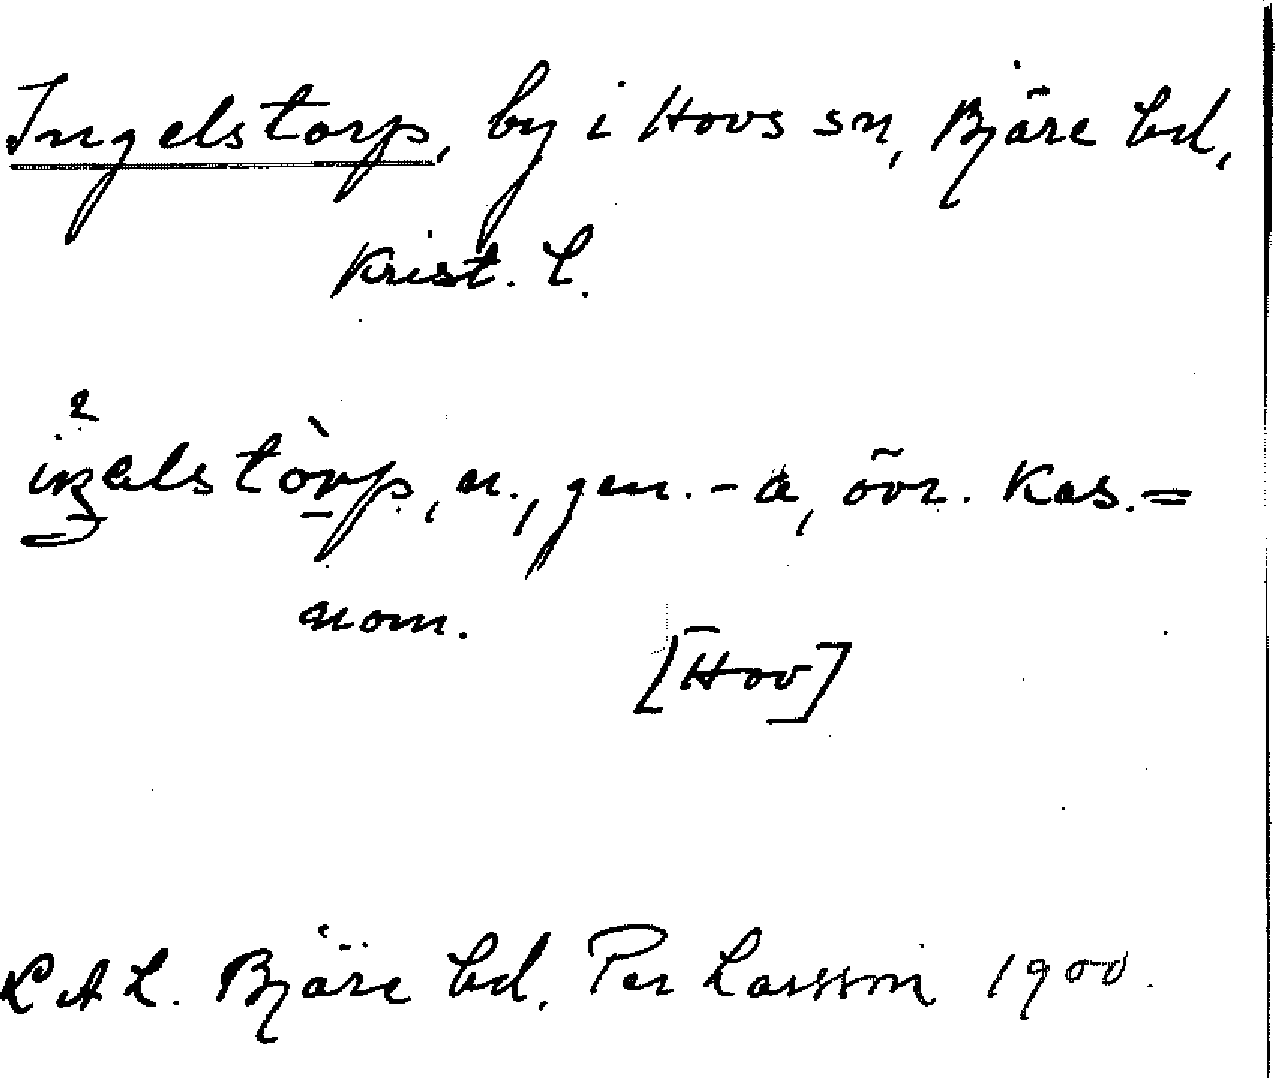 Ingelstorp, by i Hovs sn, Bjäre hd,
Krist. l.
iŋelstòrp, n., gen. -a, övr. kas. =
nom.
[Hov]
L A L. Bjäre hd. Per Larsson 1900.